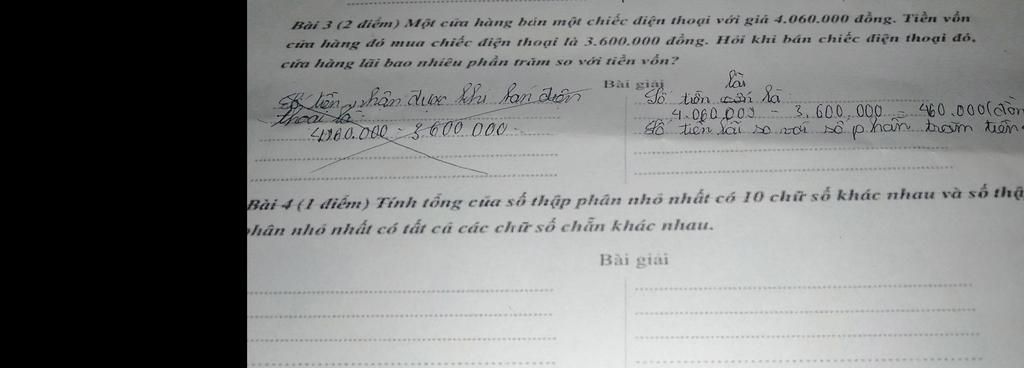 Bài 3 (2 điểm) Một cửa hàng bán một chiếc điện thoại với giá 4.060.000 đồng. Tiền vốn
cửa hàng đó mua chiếc điện thoại là 3.600.000 đồng. Hỏi khi bán chiếc điện thoại đó,
cửa hàng lãi bao nhiêu phần trăm so với tiền vốn?
Bài giải
Số tiền nhận được khi bán điện
thoại là:
4160.000 - 3.600.000
lãi
Số tiền còn là
4.060.000 - 3.600.000 = 460.000(đồn
Số tiền lãi so với số phần trăm tiền
Bài 4 (1 điểm) Tính tổng của số thập phân nhỏ nhất có 10 chữ số khác nhau và số thậ
phân nhỏ nhất có tất cả các chữ số chẵn khác nhau.
Bài giải